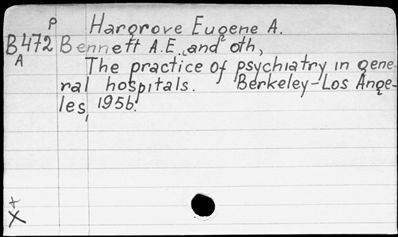 P
Hargrove Eugene A.
B472 Bennett A.E. and oth,
A
The practice of psychiatry in gene-
ral hospitals. Berkeley-Los Ange-
les, 1956.
+
X